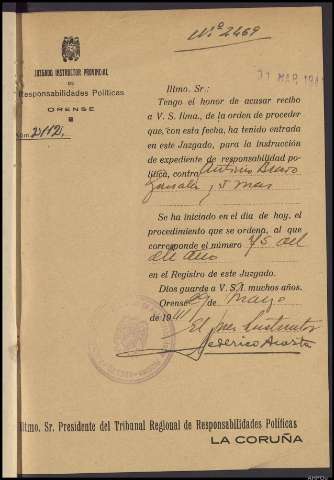 Nº 2469
JUZGADO INSTRUCTOR PROVINCIAL
DE
Responsabilidades Políticas
ORENSE
Núm.
31 MAR. 194
Iltmo. Sr.:
Tengo el honor de acusar recibo
a V. S. Ilma., de la orden de proceder
que, con esta fecha, ha tenido entrada
en este Juzgado, para la instrucción
de expediente de responsabilidad po-
lítica, contra Antonio Bravo
González y 5 mas
Se ha iniciado en el día de hoy, el
procedimiento que se ordena, al que
corresponde el número 75 del
año
en el Registro de este Juzgado.
Dios guarde a V. S. I. muchos años.
Orense 29 de Marzo
de 1941
El Juez Instructor
Federico Acosta
Iltmo. Sr. Presidente del Tribunal Regional de Responsabilidades Políticas
LA CORUÑA